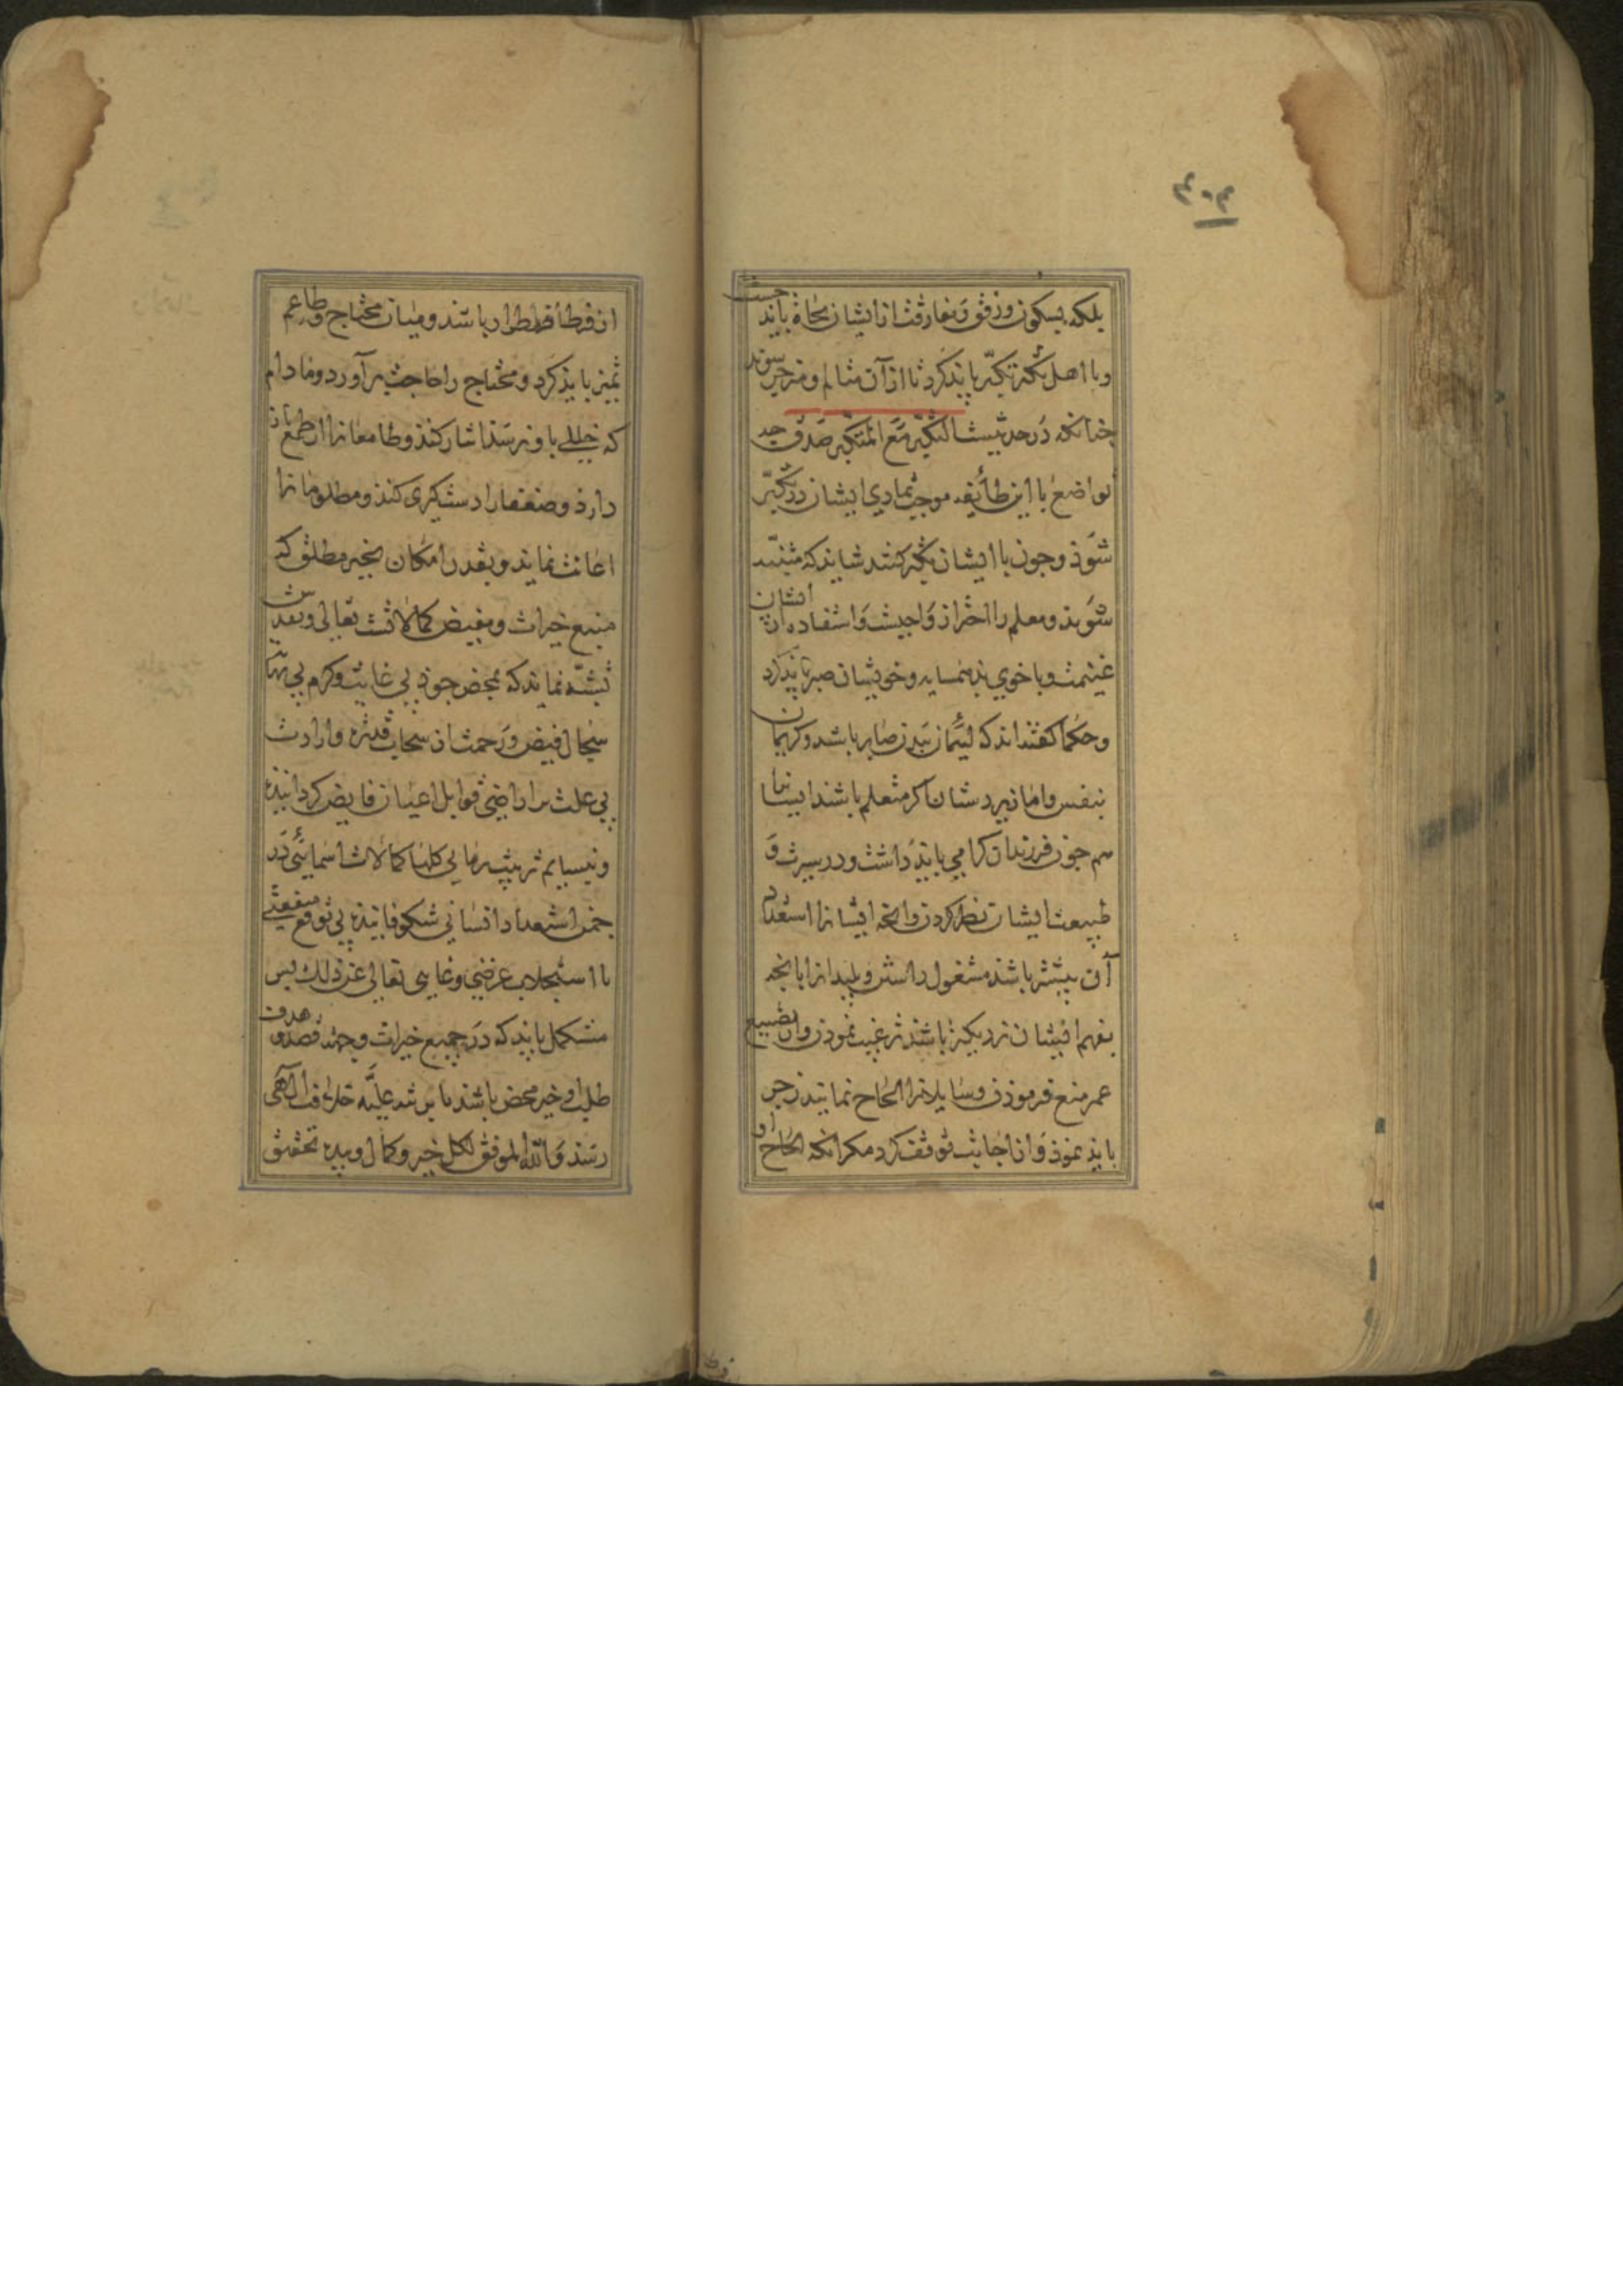 ۴۰۴
بلکه بسکون و رفق و مفارقت از ایشان نجاة باید جست
و با اهل تکبر تکبر باید کرد تا از آن متالم و منزجر شوند
چنانکه در حدیثست التکبر مع المتکبر صدقة چه
تواضع با این طایفه موجب تمادی ایشان در تکبر
شود و چون با ایشان تکبر کنند شاید که متنبه
شوند و معلم را احتراز واجبست و استفاده از ایشان
غنیمت و با خوی بد همسایه و خویشان صبر باید کرد
و حکما گفته‌اند که لئیمان ببدن صابر باشند و کریمان
بنفس و اما زیردستان اگر متعلم باشند ایشانرا
هم چون فرزندان گرامی باید داشت و در سیرت و
طبیعت ایشان نظر کردن و انچه ایشانرا استعداد
آن بیشتر باشد مشغول داشتن و بلیدانرا بانچه
بفهم ایشان نزدیکتر باشد ترغیب نمودن و از تضییع
عمر منع فرمودن و سایلانرا الحاح نمایند زجر
باید نمود و از اجابت توقف کرد مکر انکه الحاح او
از فرط اضطرار باشد و میان محتاج و طامع
تمیز باید کرد و محتاج را حاجت برآورد و مادام
که خللی باو نرسد ایثار کند و طامعانرا از طمع باز
دارد و ضعفا را دستگیری کند و مظلومانرا
اعانت نماید و بقدر امکان بخیر مطلق که
منبع خیرات و مفیض کمالاتست تعالی و تقدس
تشبه نماید که بمحض جود بی غایت و کرم بی نهایت
سجال فیض و رحمت از سحاب قدرة و ارادت
بی علت بر اراضی قوابل اعیان فایض گردانیده
و نسایم تربیت کمالات اسمایی در
چمن استعداد انسانی شکوفانیده بی توقع منفعتی
یا استجلاب عرضی تعالی عن ذلک پس
متکمل باید که در جمیع خیرات وجهه قصد و هدف
طلب او خیر محض باشد تا بمرتبه علیه خلافت الهی
رسد والله الموفق لکل خیر و کمال و بیده تحقیق